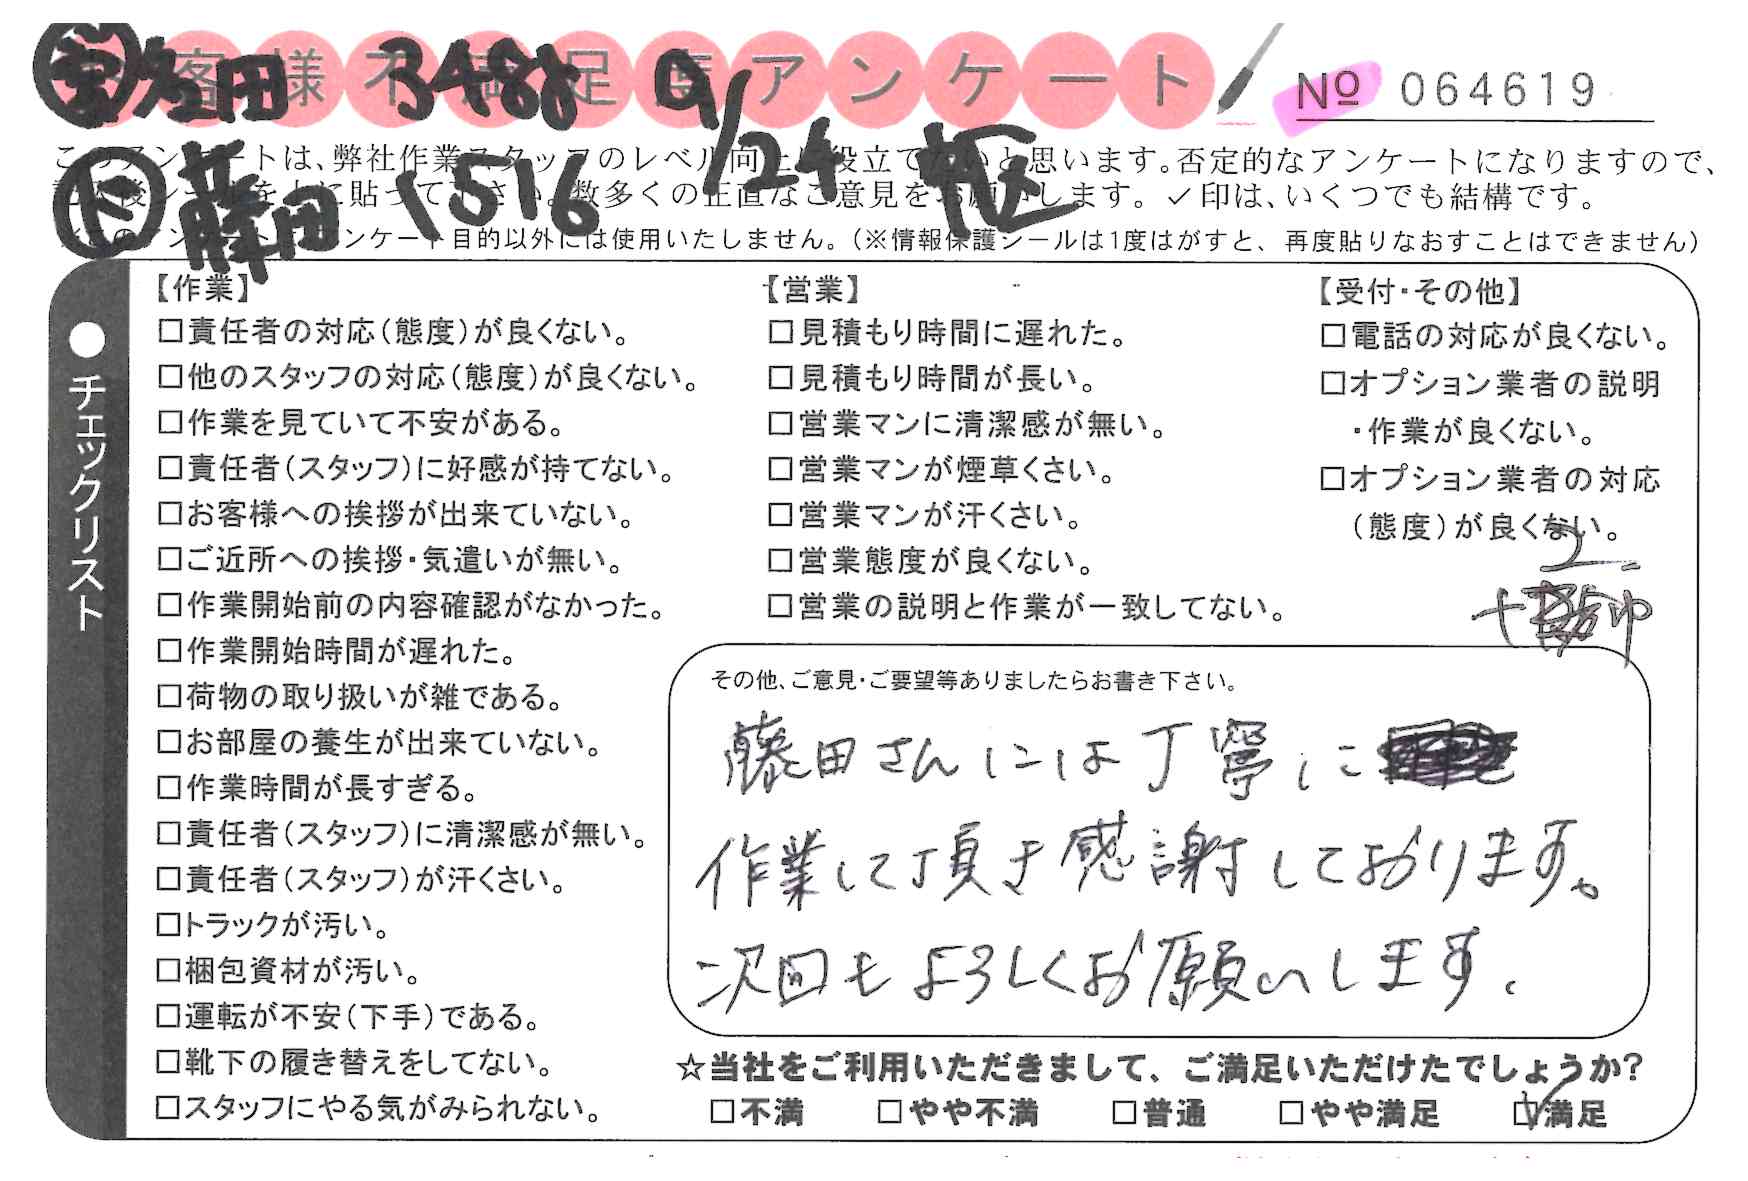 お客様不満足度アンケート
№ 064619
多田 3488 9/24
藤田 1516
このアンケートは、弊社作業スタッフのレベル向上に役立てたいと思います。否定的なアンケートになりますので、
記入後シールを上に貼って下さい。数多くの正直なご意見をお願いします。✓印は、いくつでも結構です。
※このアンケートは、アンケート目的以外には使用いたしません。(※情報保護シールは1度はがすと、再度貼りなおすことはできません)
●チェックリスト
【作業】
□責任者の対応(態度)が良くない。
□他のスタッフの対応(態度)が良くない。
□作業を見ていて不安がある。
□責任者(スタッフ)に好感が持てない。
□お客様への挨拶が出来ていない。
□ご近所への挨拶・気遣いが無い。
□作業開始前の内容確認がなかった。
□作業開始時間が遅れた。
□荷物の取り扱いが雑である。
□お部屋の養生が出来ていない。
□作業時間が長すぎる。
□責任者(スタッフ)に清潔感が無い。
□責任者(スタッフ)が汗くさい。
□トラックが汚い。
□梱包資材が汚い。
□運転が不安(下手)である。
□靴下の履き替えをしてない。
□スタッフにやる気がみられない。
【営業】
□見積もり時間に遅れた。
□見積もり時間が長い。
□営業マンに清潔感が無い。
□営業マンが煙草くさい。
□営業マンが汗くさい。
□営業態度が良くない。
□営業の説明と作業が一致してない。
【受付・その他】
□電話の対応が良くない。
□オプション業者の説明
・作業が良くない。
□オプション業者の対応
(態度)が良くない。
その他、ご意見・ご要望等ありましたらお書き下さい。
藤田さんには丁寧に
作業して頂き感謝しております。
次回もよろしくお願いします。
☆当社をご利用いただきまして、ご満足いただけたでしょうか?
□不満 □やや不満 □普通 □やや満足 ☑満足